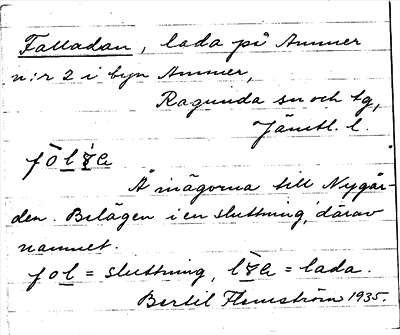 Falladan, lada på Ammer
n:r 2 i byn Ammer,
Ragunda sn och tg,
Jämtl. l.
Å inägorna till Nygår-
den. Belägen i en sluttning, därav
namnet.
fol = sluttning, = lada.
Bertil Flemström 1935.